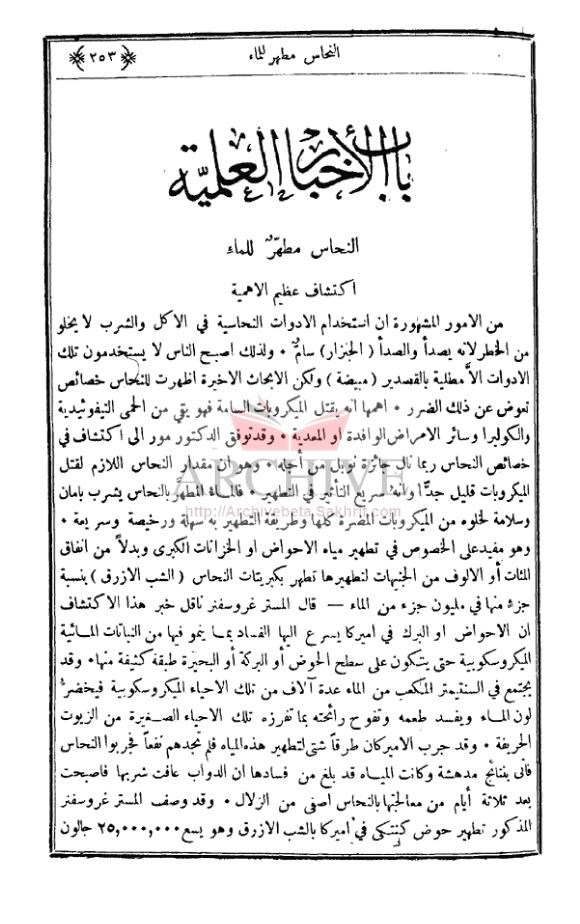 النحاس مطهر للماء
﴿ ٢٥٣ ﴾
باب الأخبار العلميّة
النحاس مطهّرٌ للماء
اكتشاف عظيم الاهمية
من الامور المشهورة ان استخدام الادوات النحاسية في الاكل والشرب لا يخلو
من الخطر لانه يصدأ والصدأ ( الجنزار ) سامٌّ ٠ ولذلك اصبح الناس لا يستخدمون تلك
الادوات الاَّ مطلية بالقصدير ( مبيضة ) ولكن الابحاث الاخيرة اظهرت للنحاس خصائص
تعوض عن ذلك الضرر ٠ اهمها انه يقتل الميكروبات السامة فهو يقي من الحمى التيفوئيدية
والكوليرا وسائر الامراض الوافدة او المعدية ٠ وقد توفق الدكتور مور الى اكتشاف في
خصائص النحاس ربما نال جائزة نوبل من أجله ٠ وهو ان مقدار النحاس اللازم لقتل
الميكروبات قليل جدًّا وانه سريع التأثير في التطهير ٠ فالماء المطهر بالنحاس يشرب بامان
وسلامة لخلوه من الميكروبات المضرة كلها وطريقة التطهير به سهلة ورخيصة وسريعة ٠
وهو مفيد على الخصوص في تطهير مياه الاحواض او الخزانات الكبرى وبدلاً من انفاق
المئات أو الالوف من الجنيهات لتطهيرها تطهر بكبريتات النحاس ( الشب الازرق ) بنسبة
جزء منها في مليون جزء من الماء — قال المستر غروسفنر ناقل خبر هذا الاكتشاف
ان الاحواض او البرك في اميركا يسرع اليها الفساد بما ينمو فيها من النباتات المائية
الميكروسكوبية حتى يتكون على سطح الحوض أو البركة أو البحيرة طبقة كثيفة منها ٠ وقد
يجتمع في السنتيمتر المكعب من الماء عدة آلاف من تلك الاحياء الميكروسكوبية فيخضرّ
لون الماء ويفسد طعمه وتفوح رائحته بما تفرزه تلك الاحياء الصغيرة من الزيوت
الحريفة ٠ وقد جرب الاميركان طرقًا شتى لتطهير هذه المياه فلم تجدهم نفعًا فجربوا النحاس
فاتى بنتائج مدهشة وكانت المياه قد بلغ من فسادها ان الدواب عافت شربها فاصبحت
بعد ثلاثة أيام من معالجتها بالنحاس أصفى من الزلال ٠ وقد وصف المستر غروسفنر
المذكور تطهير حوض كنتكي في اميركا بالشب الازرق وهو يسع ٢٥,٠٠٠,٠٠٠ جالون
ARCHIVE
http://Archivebeta.Sakhrit.com